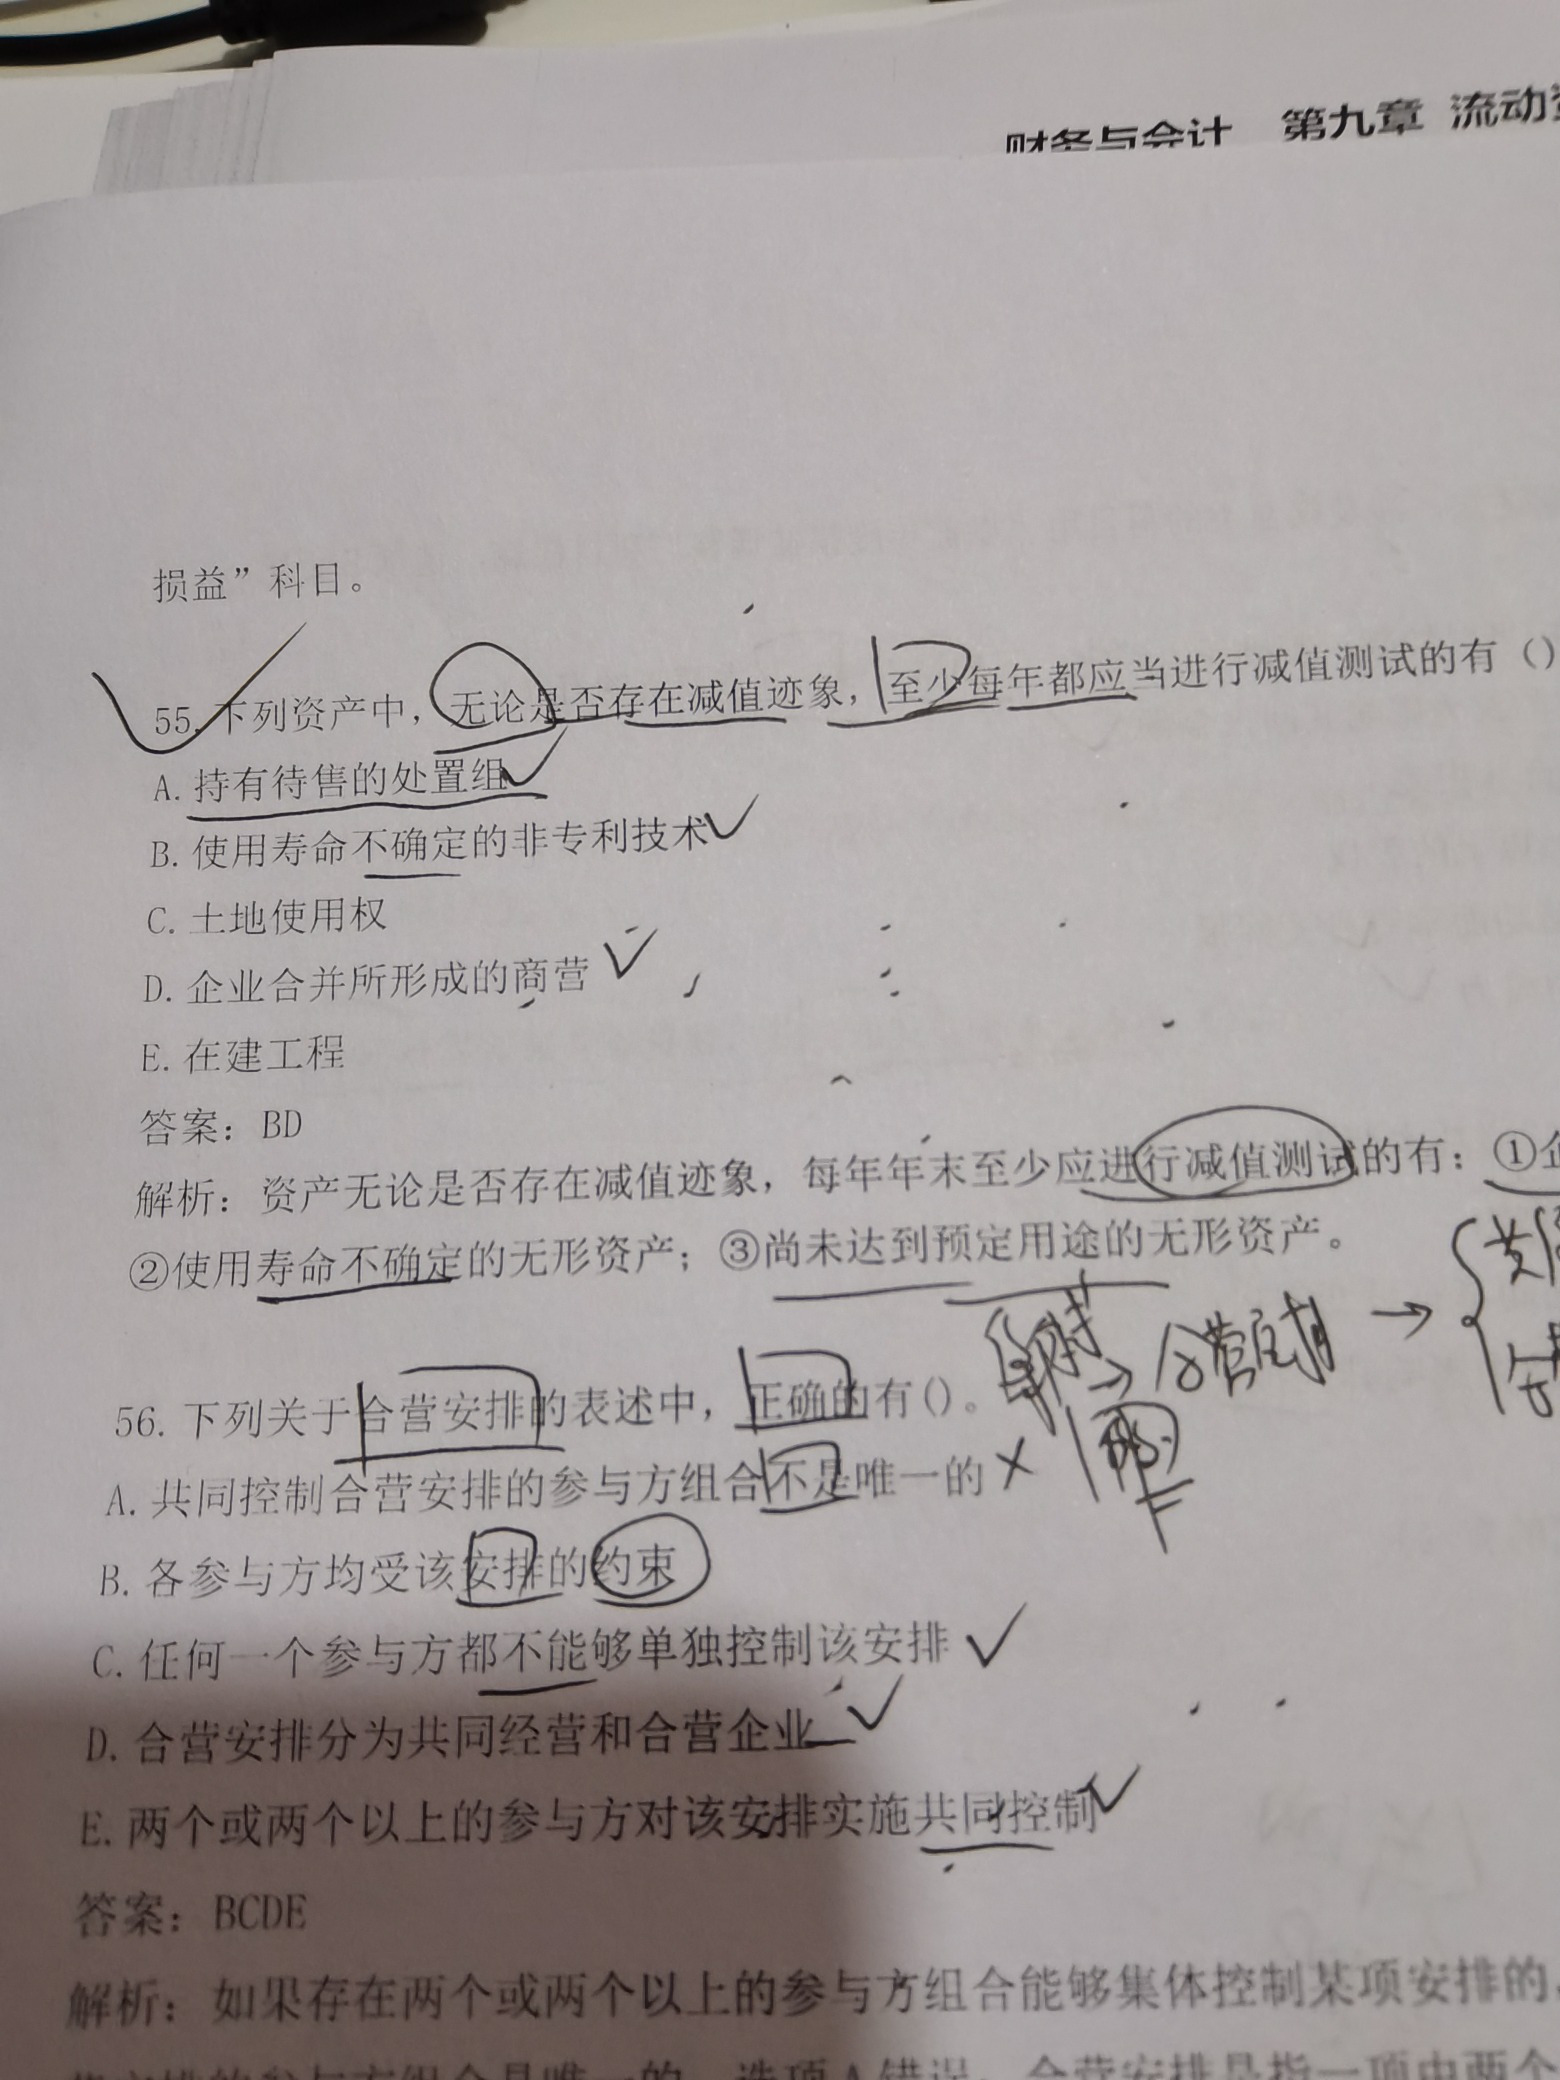 财务与会计 第九章 流动
损益”科目。
55. 下列资产中，无论是否存在减值迹象，至少每年都应当进行减值测试的有（）
A. 持有待售的处置组
B. 使用寿命不确定的非专利技术
C. 土地使用权
D. 企业合并所形成的商营
E. 在建工程
答案：BD
解析：资产无论是否存在减值迹象，每年年末至少应进行减值测试的有：①企
②使用寿命不确定的无形资产；③尚未达到预定用途的无形资产。
→合营安排→
56. 下列关于合营安排的表述中，正确的有（）。
A. 共同控制合营安排的参与方组合不是唯一的 ×
B. 各参与方均受该安排的约束
C. 任何一个参与方都不能够单独控制该安排
D. 合营安排分为共同经营和合营企业
E. 两个或两个以上的参与方对该安排实施共同控制
答案：BCDE
解析：如果存在两个或两个以上的参与方组合能够集体控制某项安排的，
选项A错误；合营安排是指一项由两个